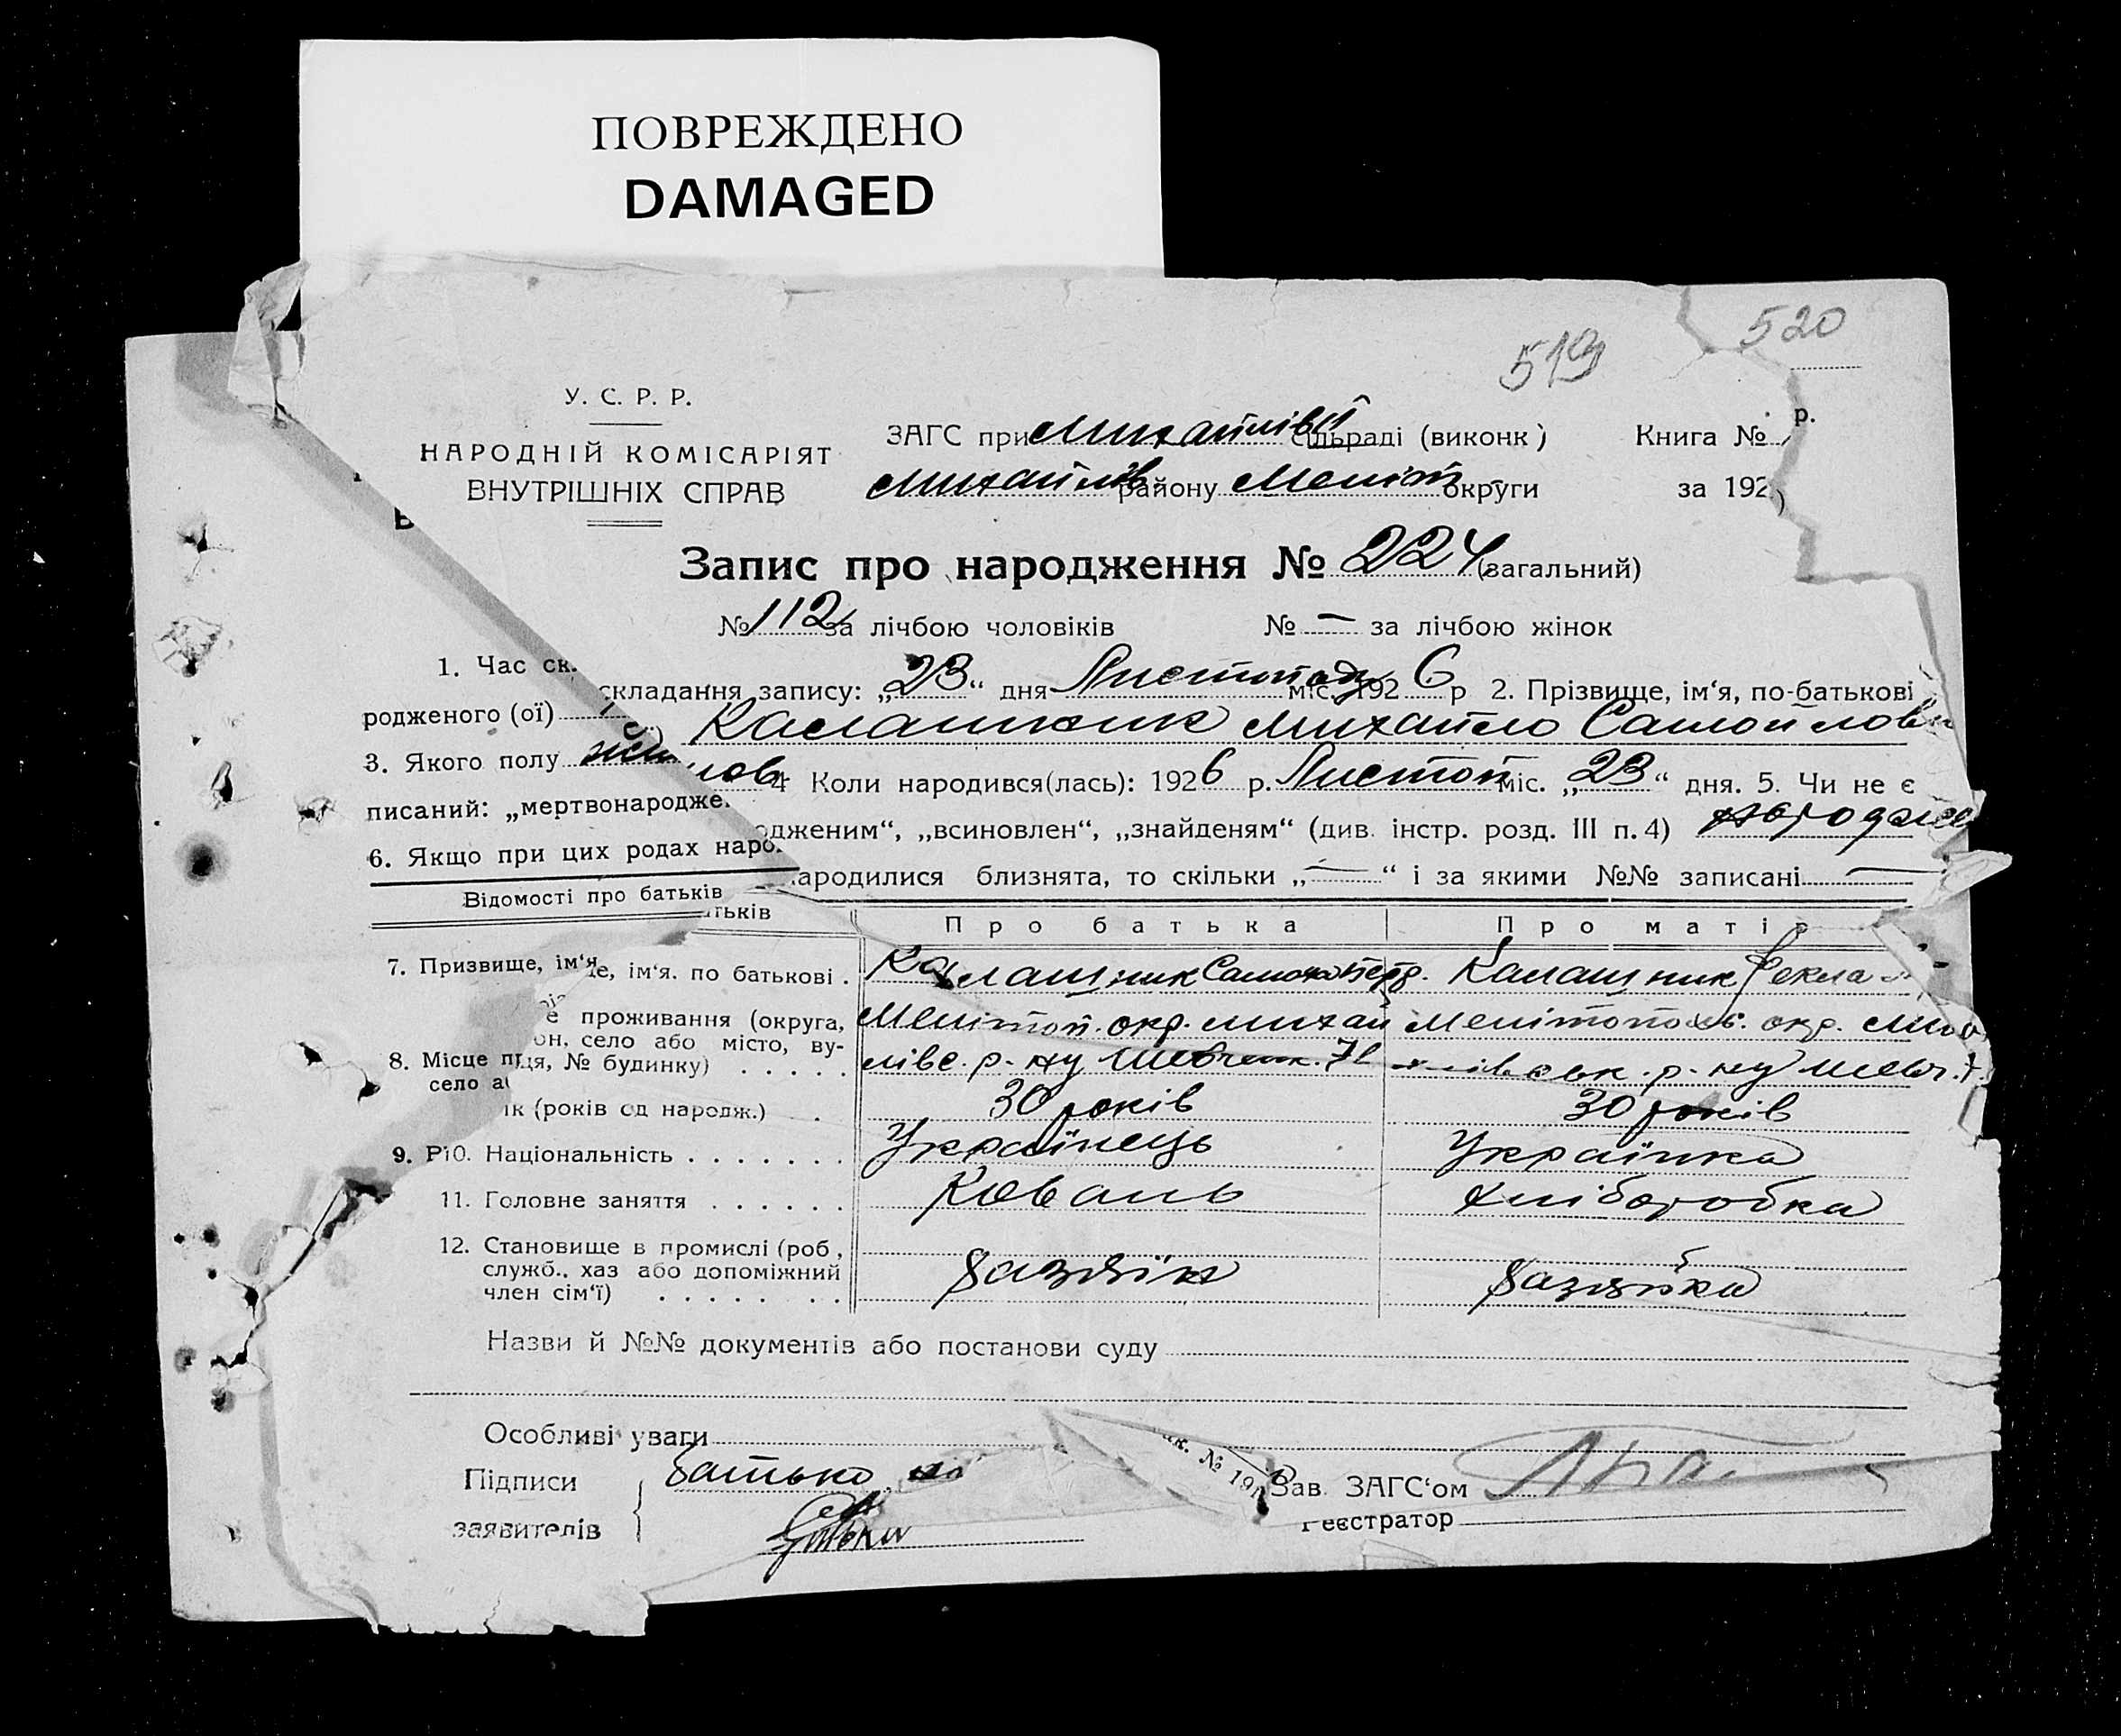 ПОВРЕЖДЕНО
DAMAGED
520
519
У. С. Р. Р.
НАРОДНІЙ КОМІСАРІЯТ
ВНУТРІШНІХ СПРАВ
ЗАГС при Михайлівїй сільраді (виконк) Книга № р.
Михайлів. району Меліт округи за 192
Запис про народження № 224 (загальний)
№ 112 за лічбою чоловіків № — за лічбою жінок
1. Час ск. складання запису: „23“ дня Листопаду міс. 192 6 р 2. Прізвище, ім‘я, по-батькові
родженого (ої) Калашник Михайло Самойлов
3. Якого полу 4 Коли народився(лась): 192 6 р. Листоп міс. „23“ дня. 5. Чи не є
писаний: „мертвонародже. одженим“, „всиновлен“, „знайденям“ (див. інстр. розд. III п. 4)
6. Якщо при цих родах наро. народилися близнята, то скільки „—“ і за якими №№ записані —
Відомості про батьків тьків Про батька Про матір
7. Призвище, ім‘я е, ім‘я. по батькові . Калашник Калашник Текла
е проживання (округа, Мелітоп. окр. Михай Мелітопольс. окр. Ми
он, село або місто, ву-
8. Місце п ця, № будинку) . . . . . лівс. р. ну Шевченк. р. ну
село а
ік (років од народж.) . 30 років 30 років
9. Рі 10. Національність . . . . . . . Українець Українка
11. Головне заняття . . . . . . Коваль Хліборобка
12. Становище в промислі (роб,
служб., хаз або допоміжний Хазяїн Хазяйка
член сім‘ї) . . . . . . .
Назви й №№ документів або постанови суду
Особливі уваги
Підписи Батько
заявителів
Зав. ЗАГС‘ом
Реєстратор